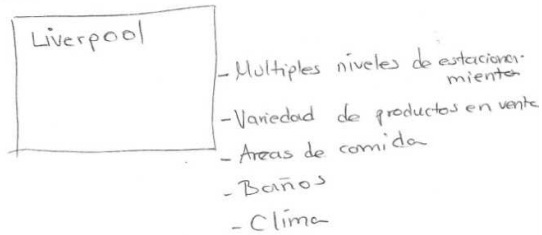 Liverpool
- Multiples niveles de estaciona-
mientos
- Variedad de productos en venta
- Areas de comida
- Baños
- Clima